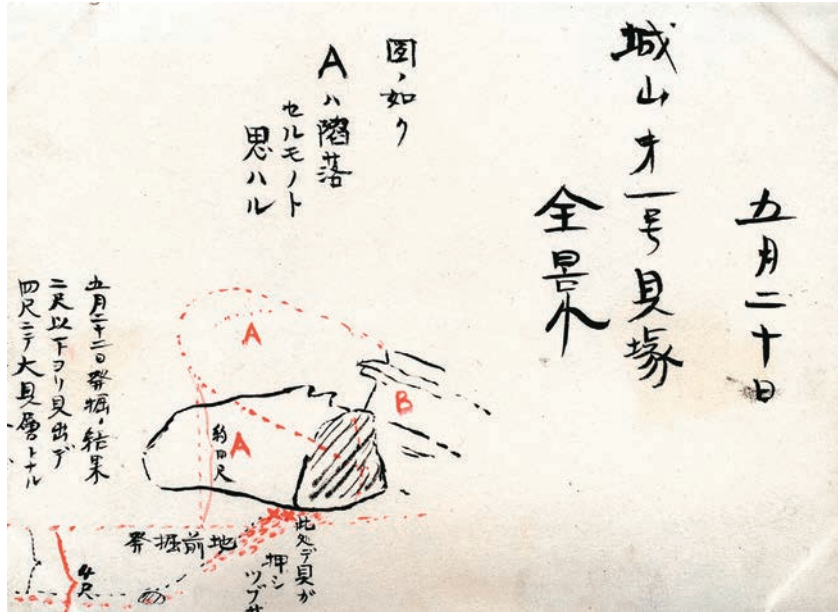 五月二十日
城山才一号貝塚
全景
図ノ如ク
Aハ陥落
セルモノト
思ハル
五月二十二日発掘ノ結果
二尺以下ヨリ貝出デ
四尺ニテ大貝層トナル
A
B
A
約四尺
発掘前地
此処デ貝ガ
押シ
ツブサ
4尺